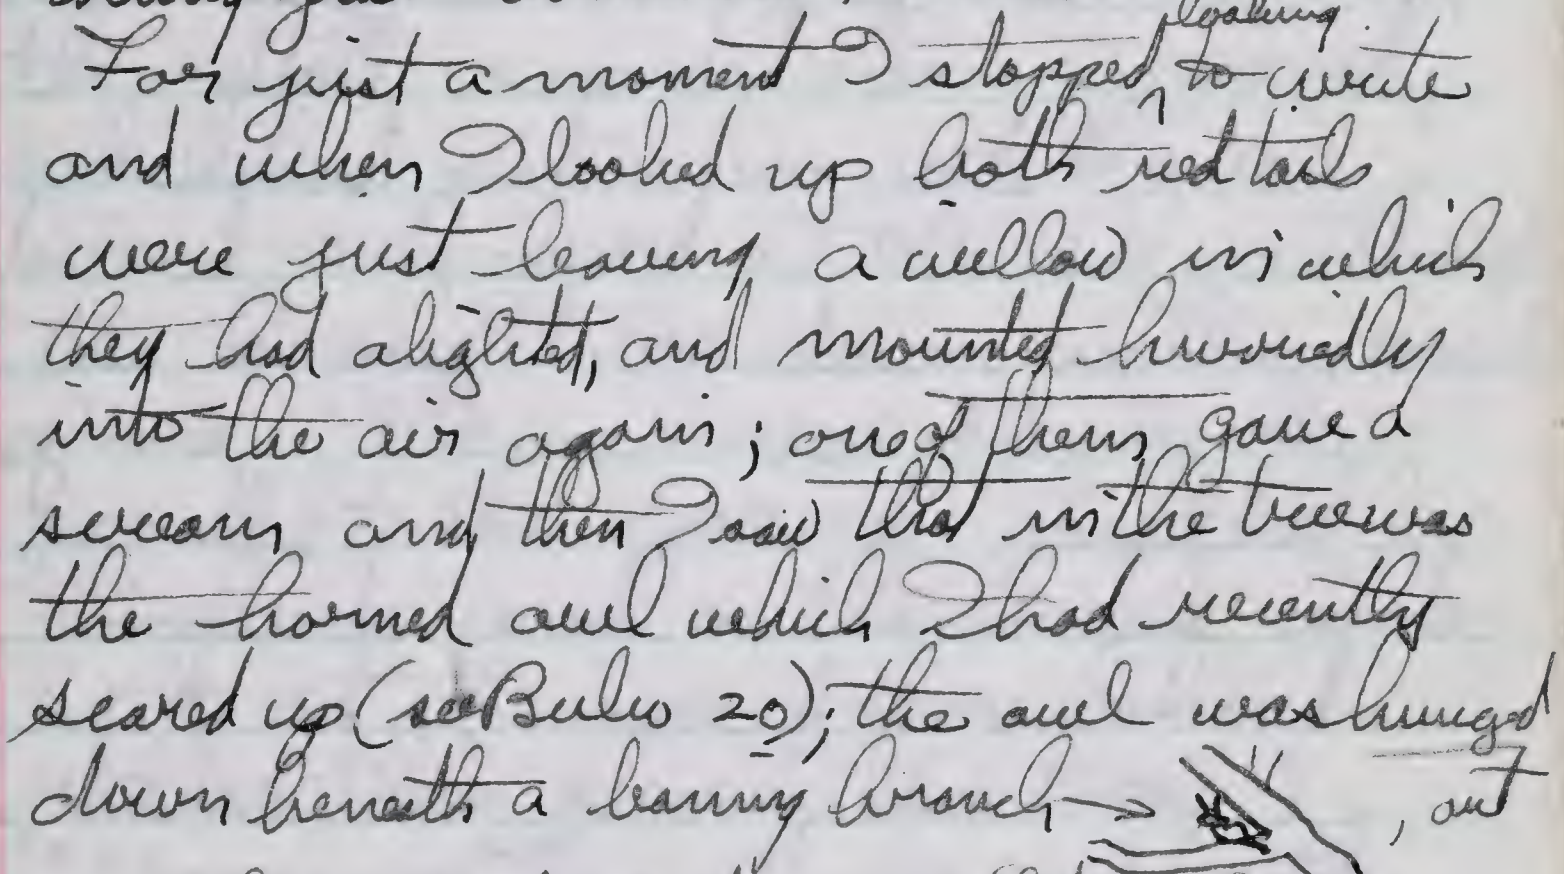 looking
For just a moment I stopped ^ to write
and when I looked up both redtails
were just leaving a willow in which
they had alighted, and mounted hurriedly
into the air again; one of them gave a
scream and then I saw that in the tree was
the horned owl which I had recently
scared up (see Bubo 20); the owl was hunged
down beneath a branch → , out